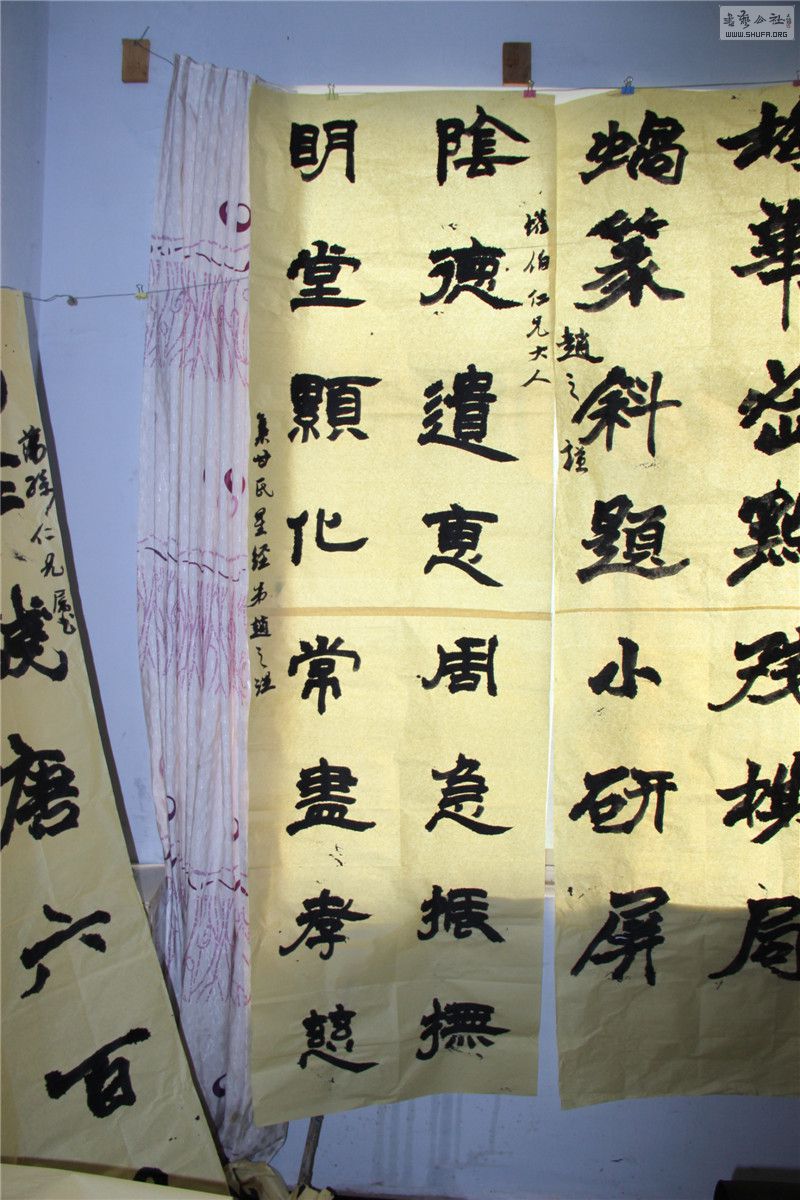 梅華密點殘棋局
蝸篆斜題小研屏
趙之謙
伯仁兄大人
陰德遺惠周急振撫
明堂顯化常盡孝慈
集甘氏星經弟趙之謙
仁兄屬書
唐六百
書藝公社
WWW.SHUFA.ORG